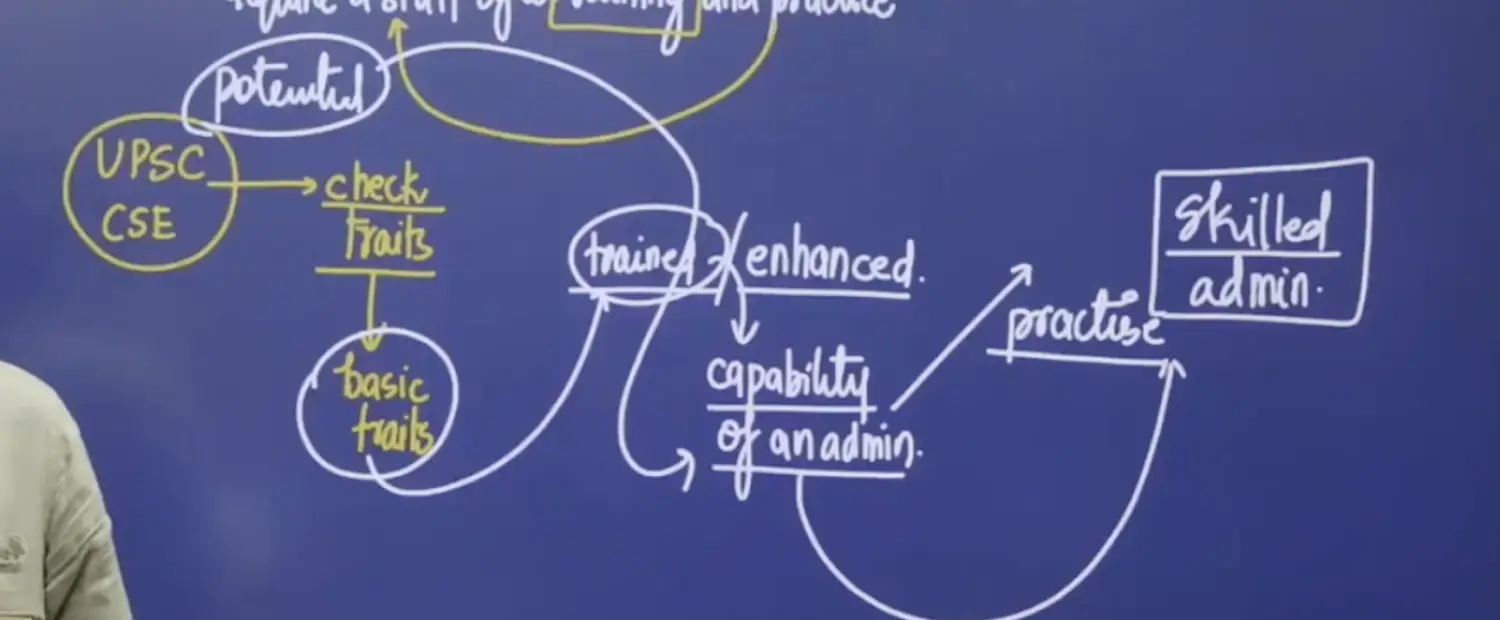 and practice
potential
UPSC
CSE
check
traits
basic
traits
trained / enhanced.
capability
of an admin.
practise
skilled
admin.